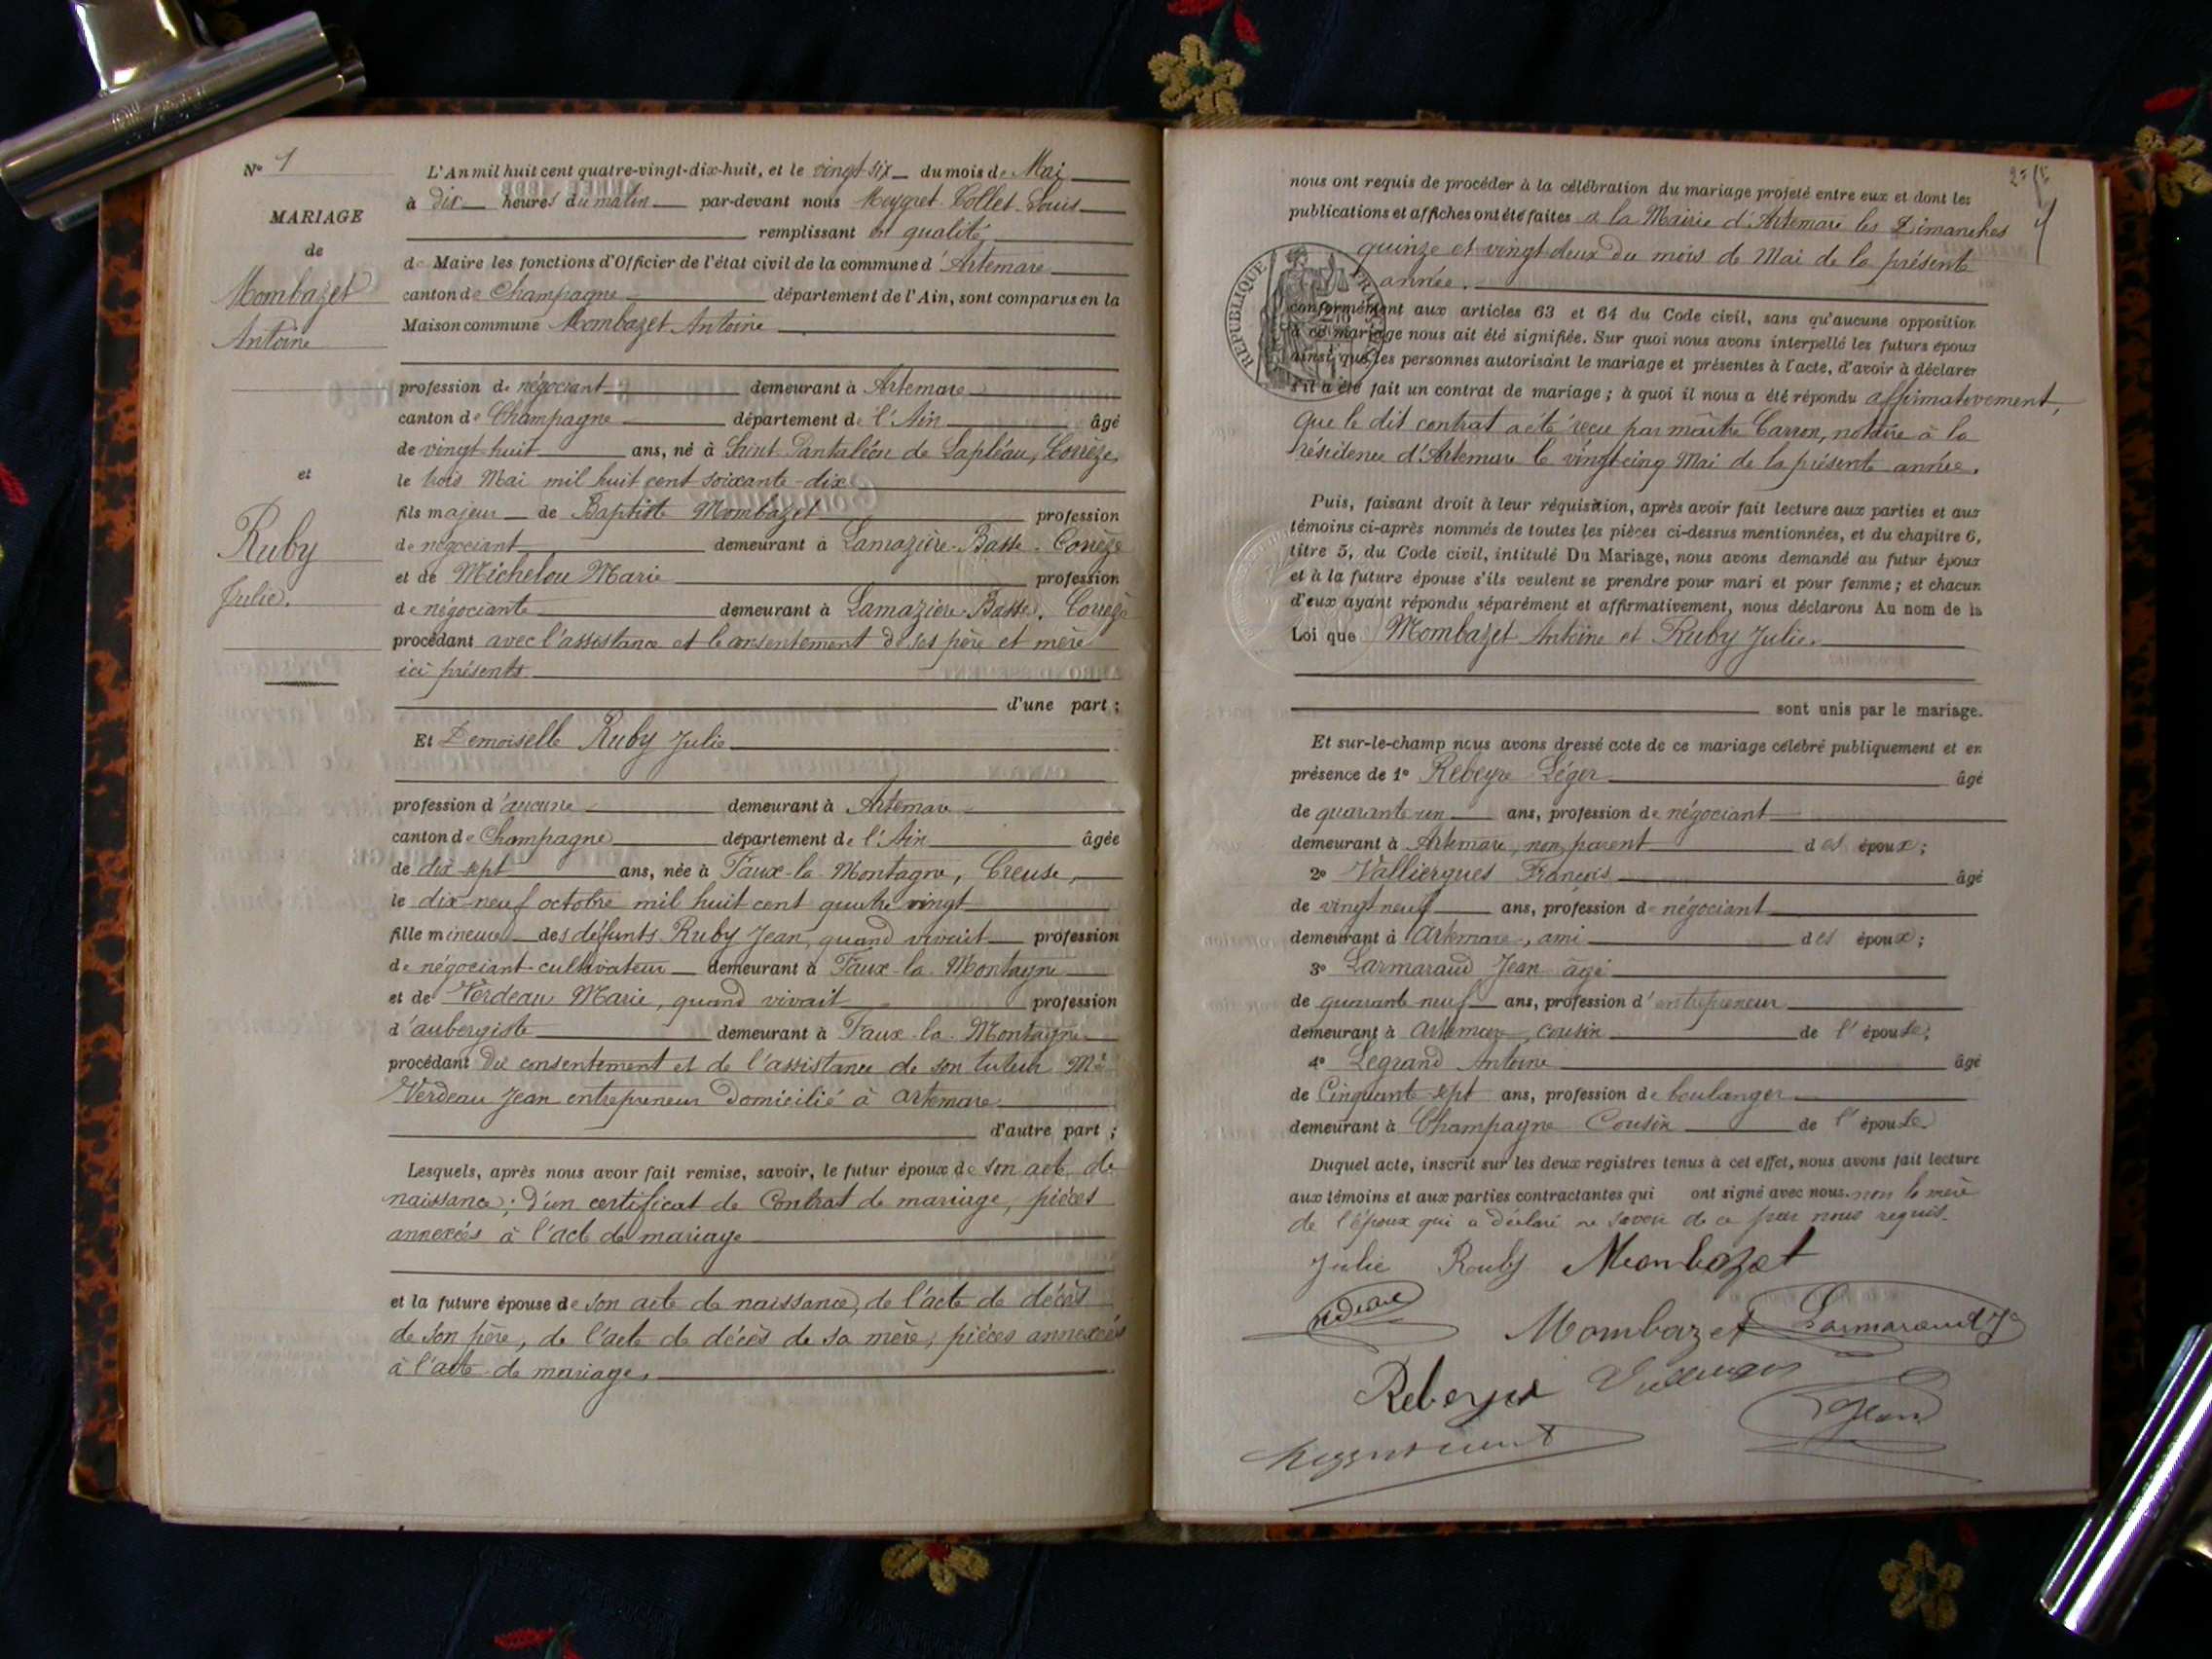 N° 1
MARIAGE
de
Mombazet
Antoine
et
Ruby
Julie.
L'An mil huit cent quatre-vingt-dix-huit, et le vingt-six du mois de Mai
à dix heures du matin par-devant nous Meygret-Collet Louis
remplissant en qualité
de Maire les fonctions d'Officier de l'état civil de la commune d'Artemare
canton de Champagne département de l'Ain, sont comparus en la
Maison commune Mombazet Antoine
profession de négociant demeurant à Artemare
canton de Champagne département de l'Ain âgé
de vingt huit ans, né à Saint Pantaléon de Lapléau, Corrèze,
le trois Mai mil huit cent soixante-dix
fils majeur de Baptiste Mombazet profession
de négociant demeurant à Lamazière-Basse-Corrèze
et de Michelou Marie profession
de négociante demeurant à Lamazière-Basse, Corrèze
procédant avec l'assistance et le consentement de ses père et mère
ici présents
d'une part ;
Et Demoiselle Ruby Julie
profession d'aucune demeurant à Artemare
canton de Champagne département de l'Ain âgée
de dix-sept ans, née à Faux-la-Montagne, Creuse,
le dix-neuf octobre mil huit cent quatre vingt
fille mineure des défunts Ruby Jean, quand vivait profession
de négociant-cultivateur demeurant à Faux-la-Montagne
et de Verdeau Marie, quand vivait profession
d'aubergiste demeurant à Faux-la-Montagne
procédant du consentement et de l'assistance de son tuteur Mr
Verdeau Jean entrepreneur domicilié à artemare
d'autre part ;
Lesquels, après nous avoir fait remise, savoir, le futur époux de son acte de
naissance; d'un certificat de Contrat de mariage, pièces
annexées à l'acte de mariage
et la future épouse de son acte de naissance, de l'acte de décès
de son père, de l'acte de décès de sa mère; pièces annexées
à l'acte de mariage.
nous ont requis de procéder à la célébration du mariage projeté entre eux et dont les
publications et affiches ont été faites à la Mairie d'Artemare les Dimanches
quinze et vingt-deux du mois de Mai de la présente
année.
REPUBLIQUE
conformément aux articles 63 et 64 du Code civil, sans qu'aucune opposition
à ce mariage nous ait été signifiée. Sur quoi nous avons interpellé les futurs époux
ainsi que les personnes autorisant le mariage et présentes à l'acte, d'avoir à déclarer
s'il a été fait un contrat de mariage ; à quoi il nous a été répondu affirmativement,
que le dit contrat a été reçu par maître Carron, notaire à la
résidence d'Artemare le vingt-cinq Mai de la présente année.
Puis, faisant droit à leur réquisition, après avoir fait lecture aux parties et aux
témoins ci-après nommés de toutes les pièces ci-dessus mentionnées, et du chapitre 6,
titre 5, du Code civil, intitulé Du Mariage, nous avons demandé au futur époux
et à la future épouse s'ils veulent se prendre pour mari et pour femme ; et chacun
d'eux ayant répondu séparément et affirmativement, nous déclarons Au nom de la
Loi que Mombazet Antoine et Ruby Julie.
sont unis par le mariage.
Et sur-le-champ nous avons dressé acte de ce mariage célébré publiquement et en
présence de 1° Rebeyre Léger âgé
de quarante-un ans, profession de négociant
demeurant à Artemare, non parent des époux ;
2° Valliergues François âgé
de vingt neuf ans, profession de négociant
demeurant à Artemare, ami des époux ;
3° Larmaraud Jean âgé
de quarante-neuf ans, profession d'entrepreneur
demeurant à Artemare, cousin de l'épouse ;
4° Legrand Antoine âgé
de Cinquante-sept ans, profession de boulanger
demeurant à Champagne Cousin de l'épouse
Duquel acte, inscrit sur les deux registres tenus à cet effet, nous avons fait lecture
aux témoins et aux parties contractantes qui ont signé avec nous. non la mère
de l'époux qui a déclaré ne savoir de ce par nous requis.
Julie Rouby Mombazet
Mombazet Larmaraud
Rebeyre